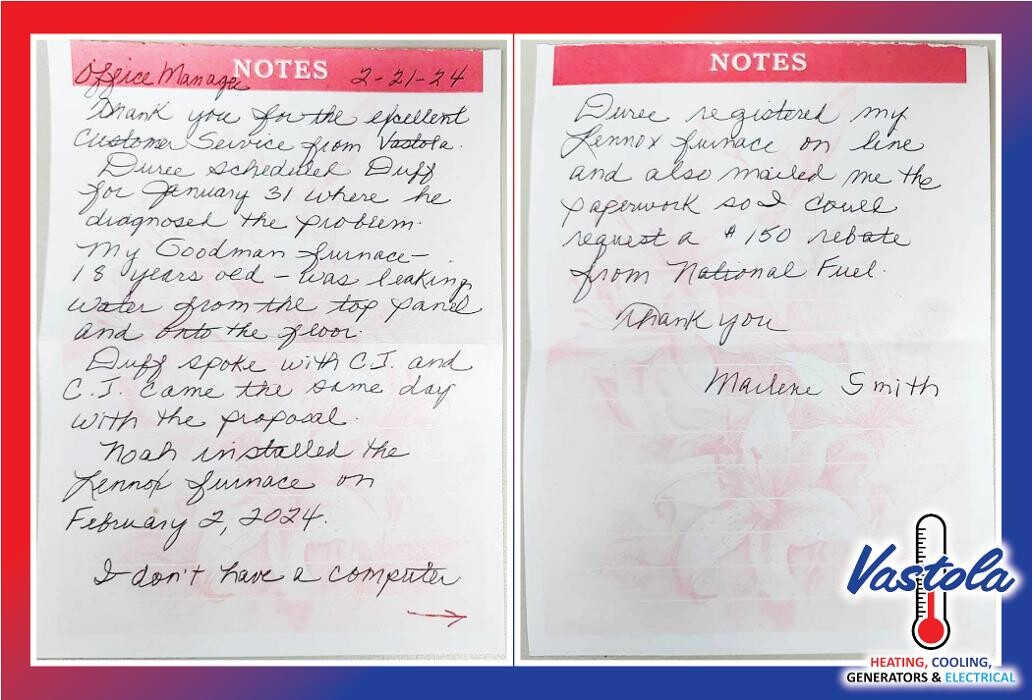 NOTES
Office Manager 2-21-24
Thank you for the excellent
Customer Service from Vastola.
Duree scheduled Duff
for January 31 where he
diagnosed the problem.
My Goodman furnace -
18 years old - was leaking
water from the top panel
and onto the floor.
Duff spoke with C.J. and
C.J. came the same day
with the proposal.
Noah installed the
Lennox furnace on
February 2, 2024.
I don't have a computer
→
NOTES
Duree registered my
Lennox furnace on line
and also mailed me the
paperwork so I could
request a $150 rebate
from National Fuel.
Thank you
Marlene Smith
Vastola
HEATING, COOLING,
GENERATORS & ELECTRICAL